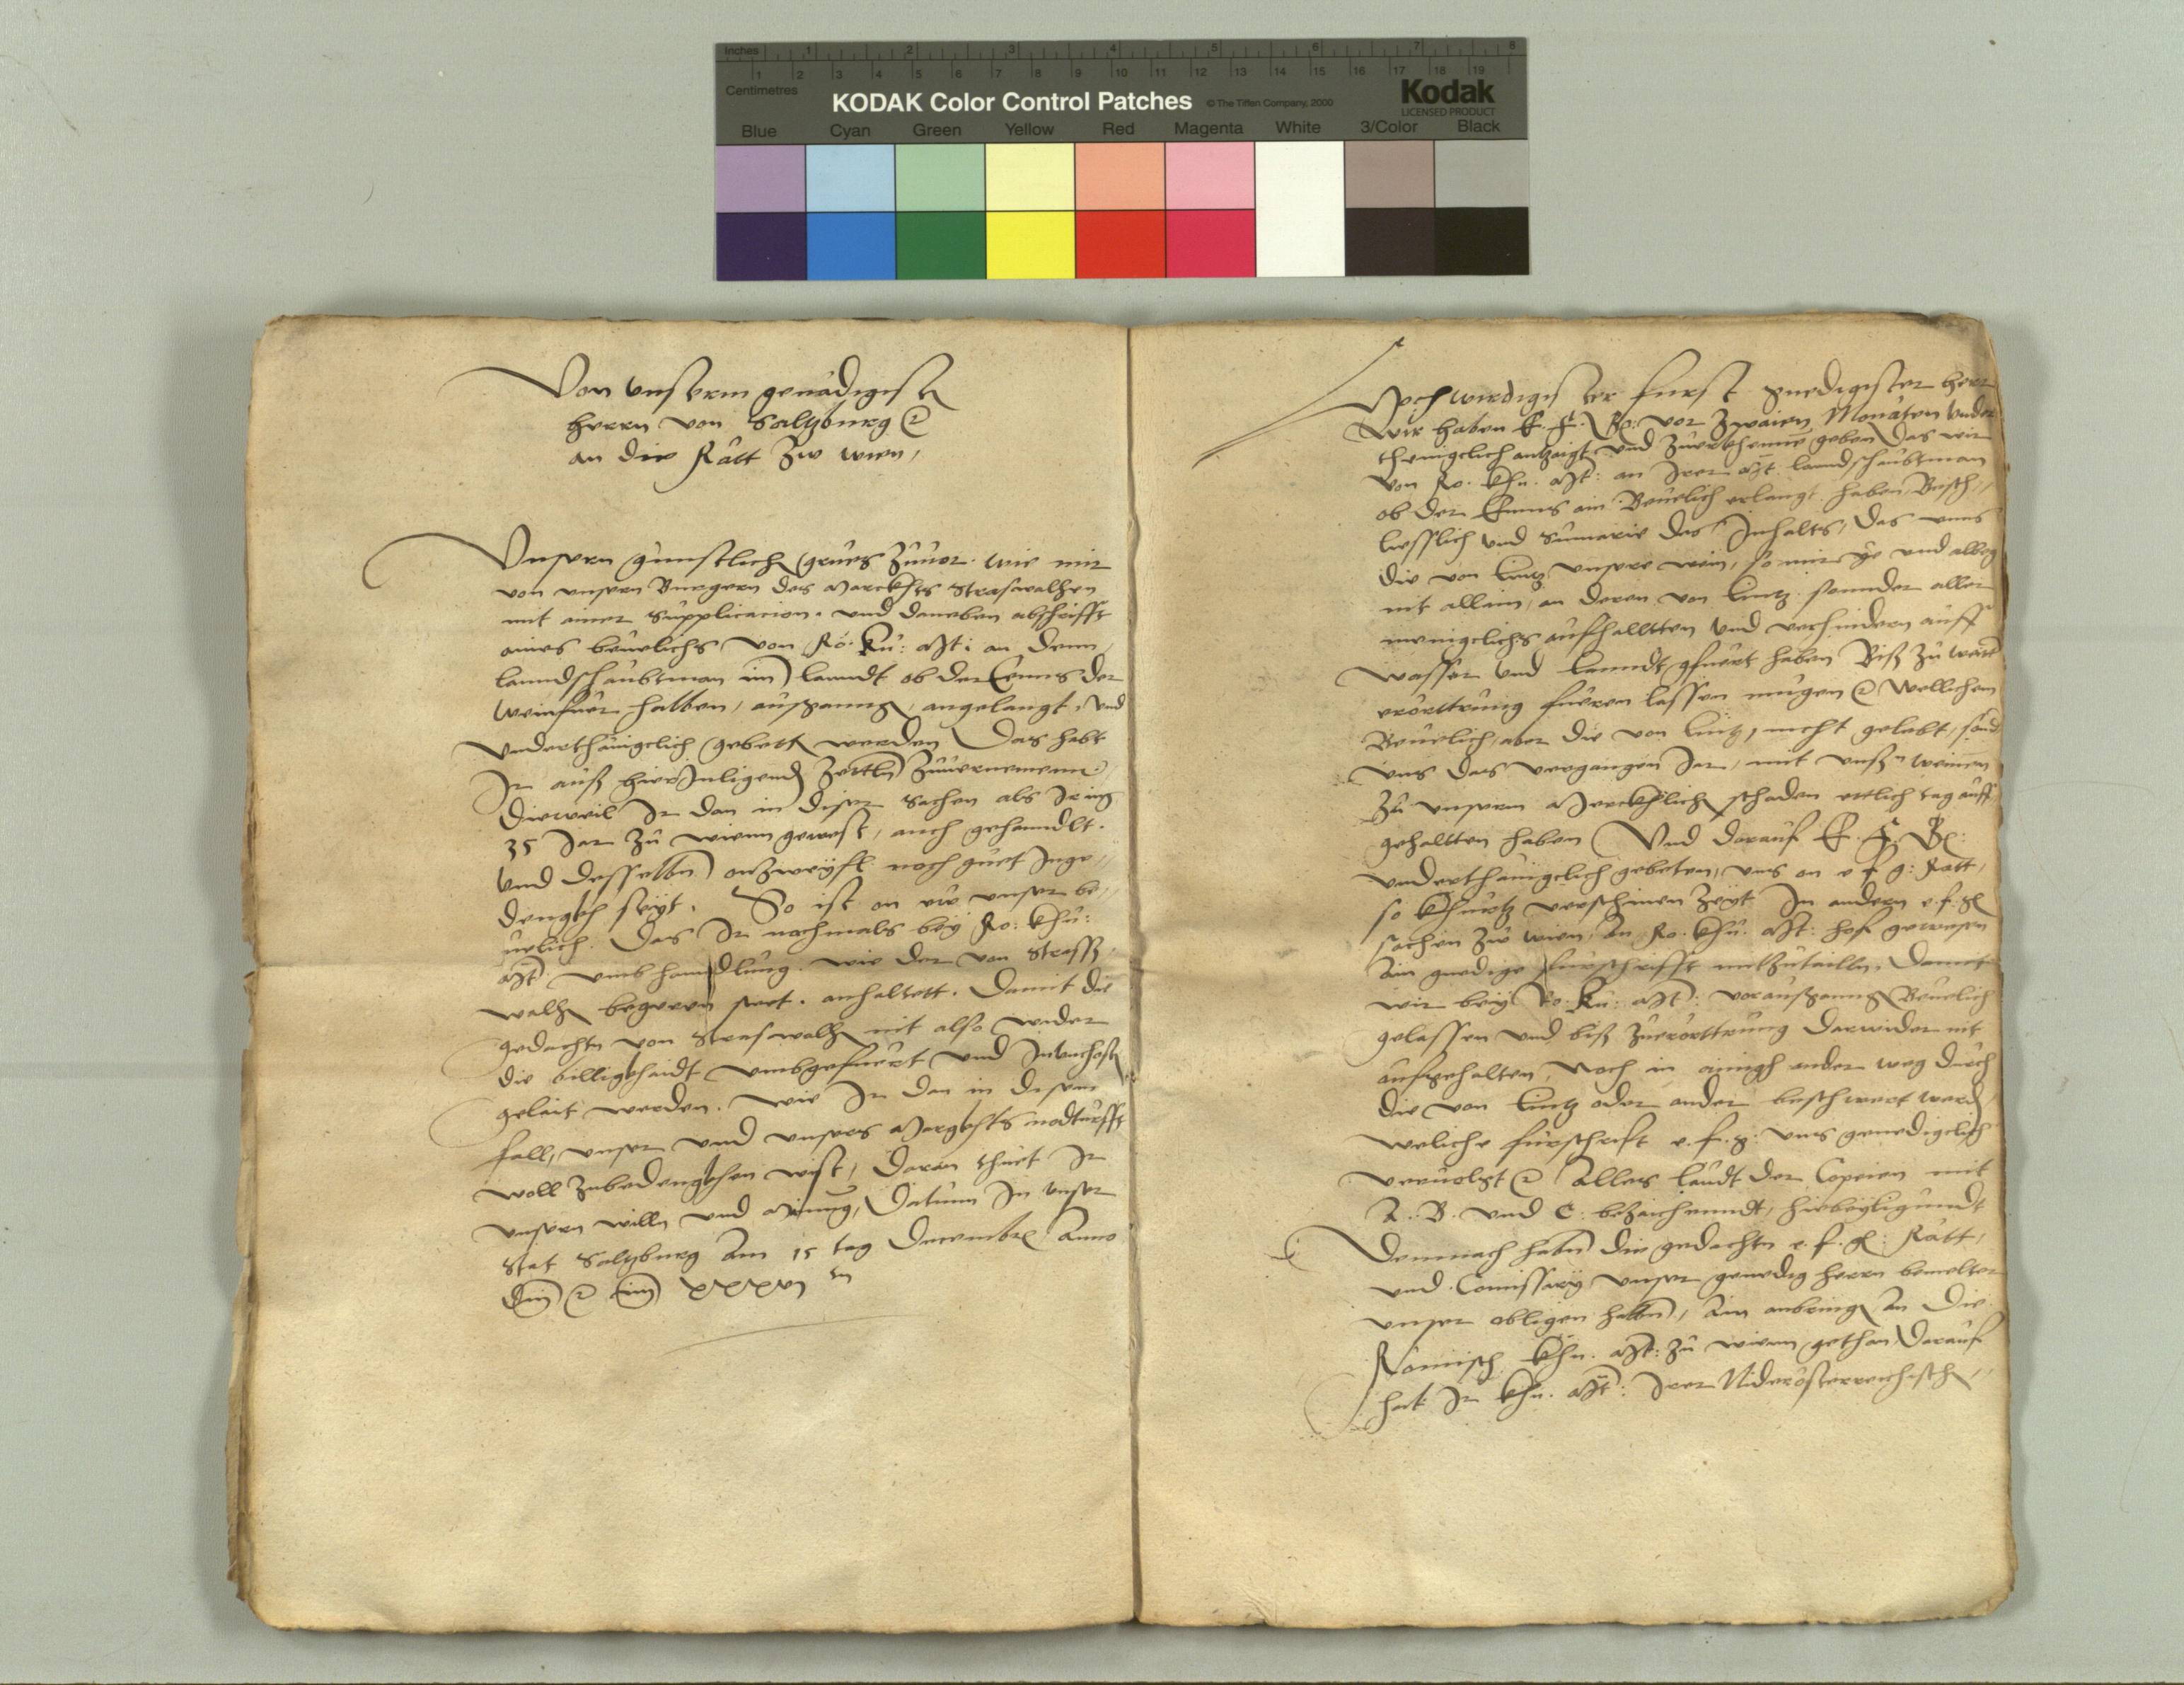 Inches 1 2 3 4 5 6 7 8
Centimetres 1 2 3 4 5 6 7 8 9 10 11 12 13 14 15 16 17 18 19
KODAK Color Control Patches © The Tiffen Company, 2000 Kodak
LICENSED PRODUCT
Blue Cyan Green Yellow Red Magenta White 3/Color Black
Von unserm genädigist
herrn von Saltzburg
an die Rätt Zw wien,
Unsern gunstlich grues zuuor. wie wir
von unsern Burgern des Marckhts Straswalhen
mit ainer Supplication. und daneben abschrifft
aines beuelichs von Rö: Kü: Mt: an denn
lanndschaubtman im lanndt ob der Enns der
weinfuer halben, ausganng, angelangt, und
underthänigclich gebett werden Das habt
Ir auß hierInligend Zettln zuuernemenn
Dieweil Ir dan in diser sachen als Ir im
35 Jar zu wienn gewest, auch gehanndlt.
und desselbn onzweyfl noch guet Inge
denckh seyt. So ist an euch unser be
uelich. Das Ir nochmals bey Rö: Khü:
Mt: umb hanndlung. wie der von Strass
walh begeern stet. anhaltett. Damit die
gedachtn von Straswalh nit also wider
die billigkhaidt umbgefuert und In
gelait werden. wie Ir dan in disem
fall, unser und unsers Margkhts nodturfft
woll zubedengkhen wist, Daran thuet Ir
unsern willn und mainung, Datum In unser
Stat Saltzburg am 15 tag Decembr Anno
xxxvj
Hochwirdigister furst gnedigister herr
Wir haben E. F. G: vor zwaien Monaten under
thenigclich antzaigt und zuerkhenne geben das wir
von Rö. Khü. Mt: an Irer Mt. lanndschaubtman
ob der Enns ain Beuelich erlangt haben, Besch
lesslich und Sumarie des Inhalts, das unns
die von Lintz unsere wein, so wir ye und alleg
nit allain, an deren von Lintz sonnder aller
menigclichs aufhalltten und verhindern auff
wasser und lanndt gfuert haben Biß zu
erörttrung fueren lassen mugen Wellichem
Beuelich, aber die von Lintz, nicht gelebt, sond
uns das vergangen Jar, mit unß weinnen
zu unserm Merckhlich schaden ettlich tag auff
gehaltten haben Und darauf E. F. G:
underthänigclich gebeten, uns an e f g: Rätt,
so Khurtz verschinen Zeyt In andern e. f. g
sachen zw wien, an Rö. Khü. Mt: hof gewesen
ain gnedige furschrifft mitzutailln. Damit
wir bey Rö: Kü: Mt: vorausganng Beuelich
gelassen und biß zuerörttrung darwider nit
aufgehalten noch in ainigh ander weg durch
die von Lintz oder ander beschwert werd,
weliche furschrifft e. f. g: uns genedigclich
veruolgt Alles laudt der Copeien mit
A. B. und C. bezaichenndt, hiebeyligundt
Demnach habn die gedachtn e. f. g: Rätt,
und Comissary unser genedig herrn bemelter
unser obligen halbn, ain anbring an die
Römisch Khü. Mt: zu wienn gethan, Darauf
hat Ir Khü. Mt: Irer Niderösterreichisch